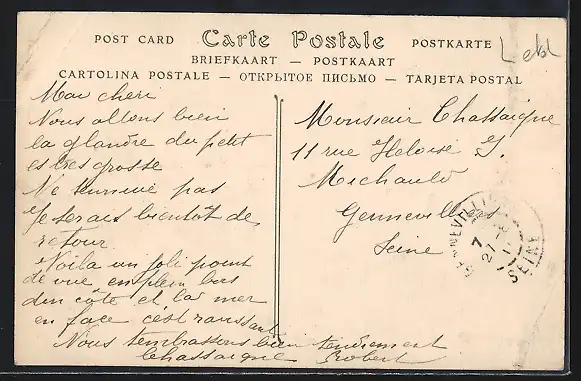 POST CARD Carte Postale POSTKARTE
BRIEFKAART — POSTKAART
CARTOLINA POSTALE — ОТКРЫТОЕ ПИСЬМО — TARJETA POSTAL
Mon cheri
Nous allons bien
la glandre du petit
es tres grosse
Ne tennuie pas
Je serais bientôt de
retour
Voila un joli point
de vue, en plein bas
dun côte et la mer
en face c'est ravissant
Nous tembrassons bien tendrement
Chassaigne Robert
Monsieur Chassaigne
11 rue Heloise
Michaud
Gennevilliers
Seine
GENNEVILLIERS
SEINE